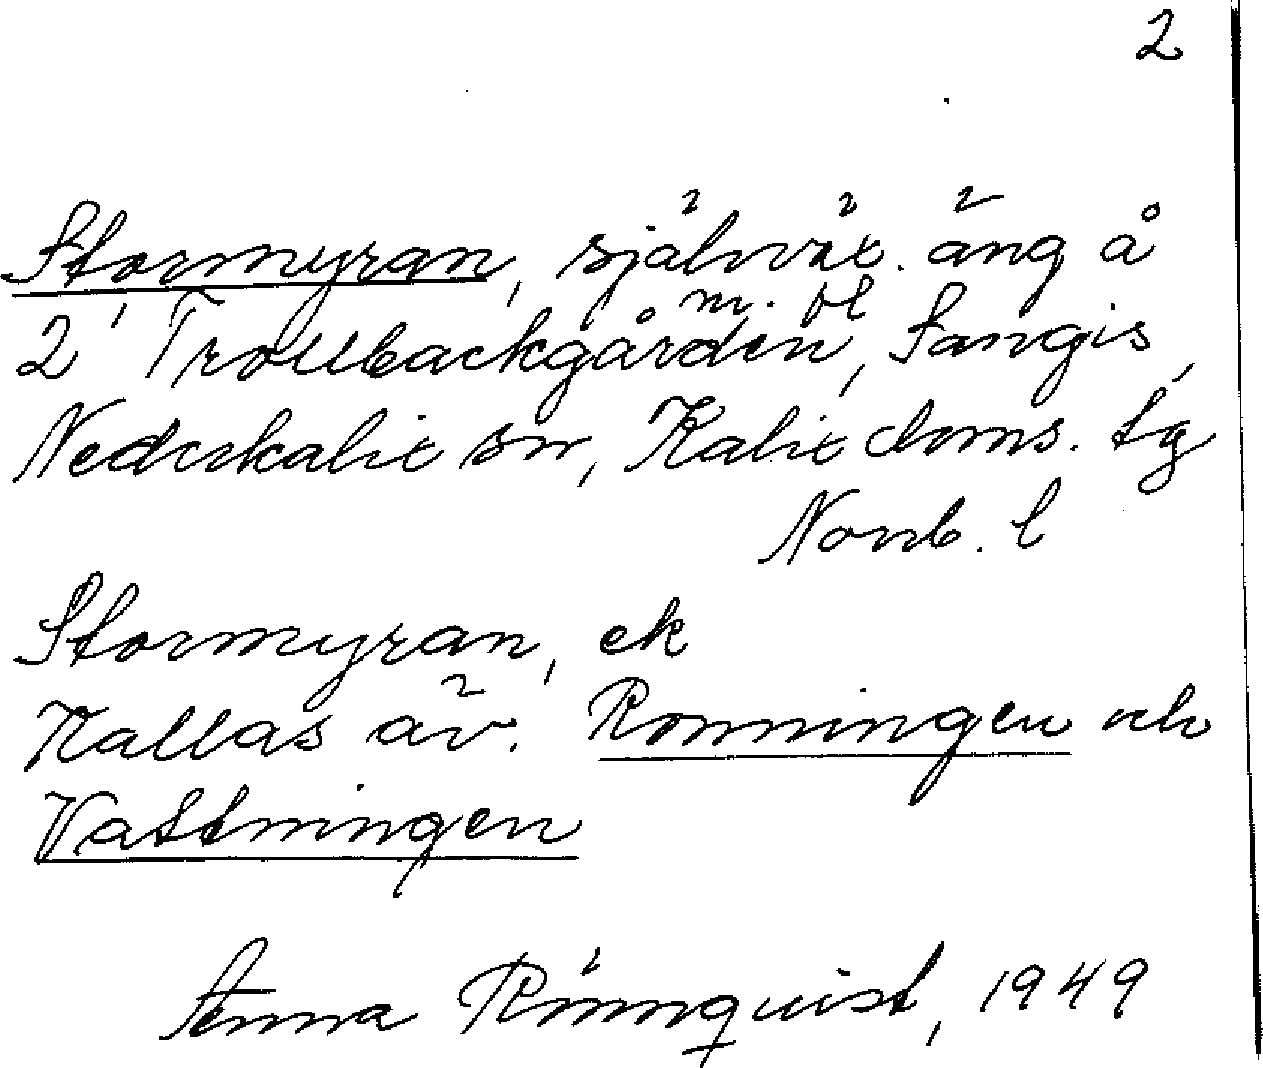 2
Stormyran, självväx. äng å
2 Trollbackgården m. fl, Sangis,
Nederkalix sn, Kalix doms. lg
Norrb. l
Stormyran, ek
Kallas äv. Ronningen och
Vattningen
Anna Rönnquist, 1949